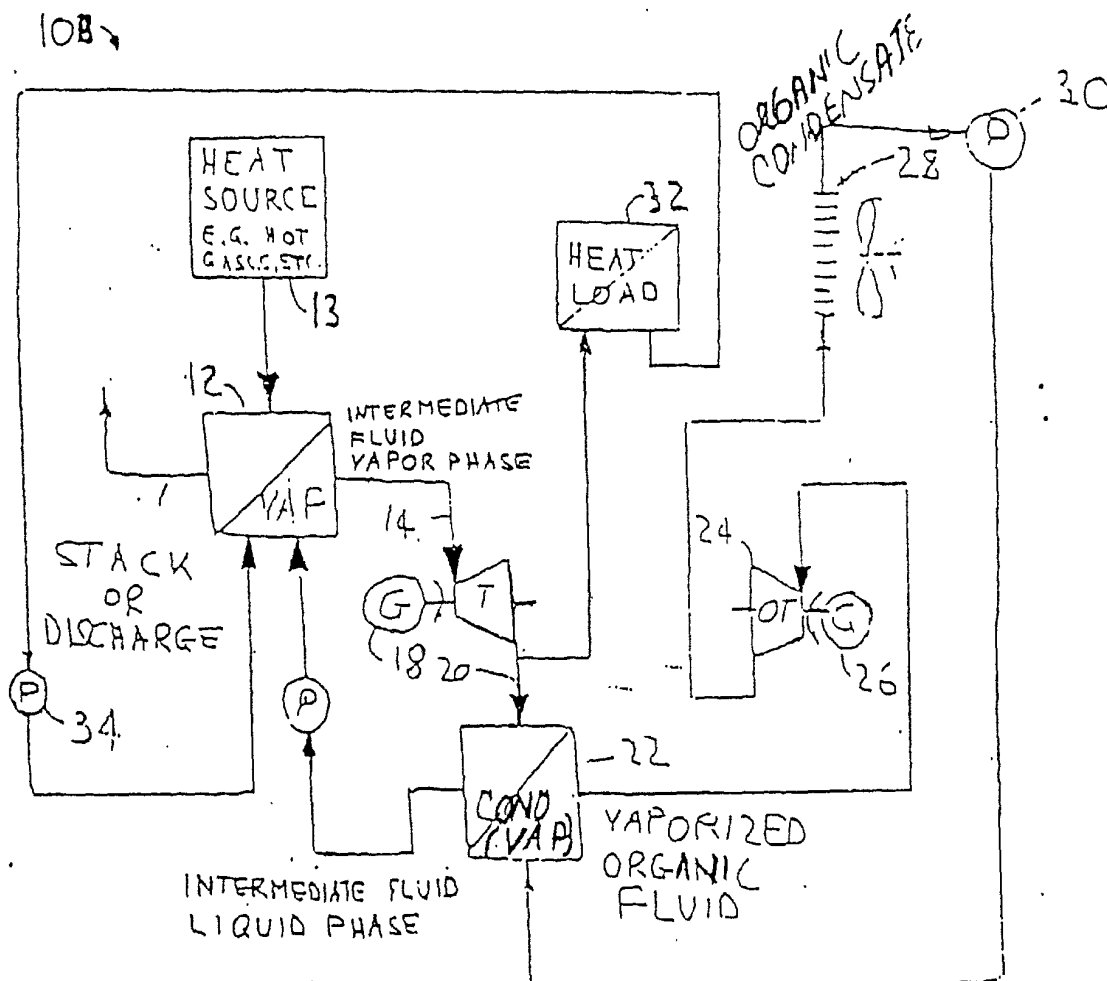 10B
ORGANIC
CONDENSATE
30
P
28
HEAT
SOURCE
E.G. HOT
GASES, ETC.
13
32
HEAT
LOAD
12
INTERMEDIATE
FLUID
VAPOR PHASE
VAP
14
STACK
OR
DISCHARGE
T
G
18
20
24
OT
G
26
P
34
P
22
COND
(VAP)
VAPORIZED
ORGANIC
FLUID
INTERMEDIATE FLUID
LIQUID PHASE